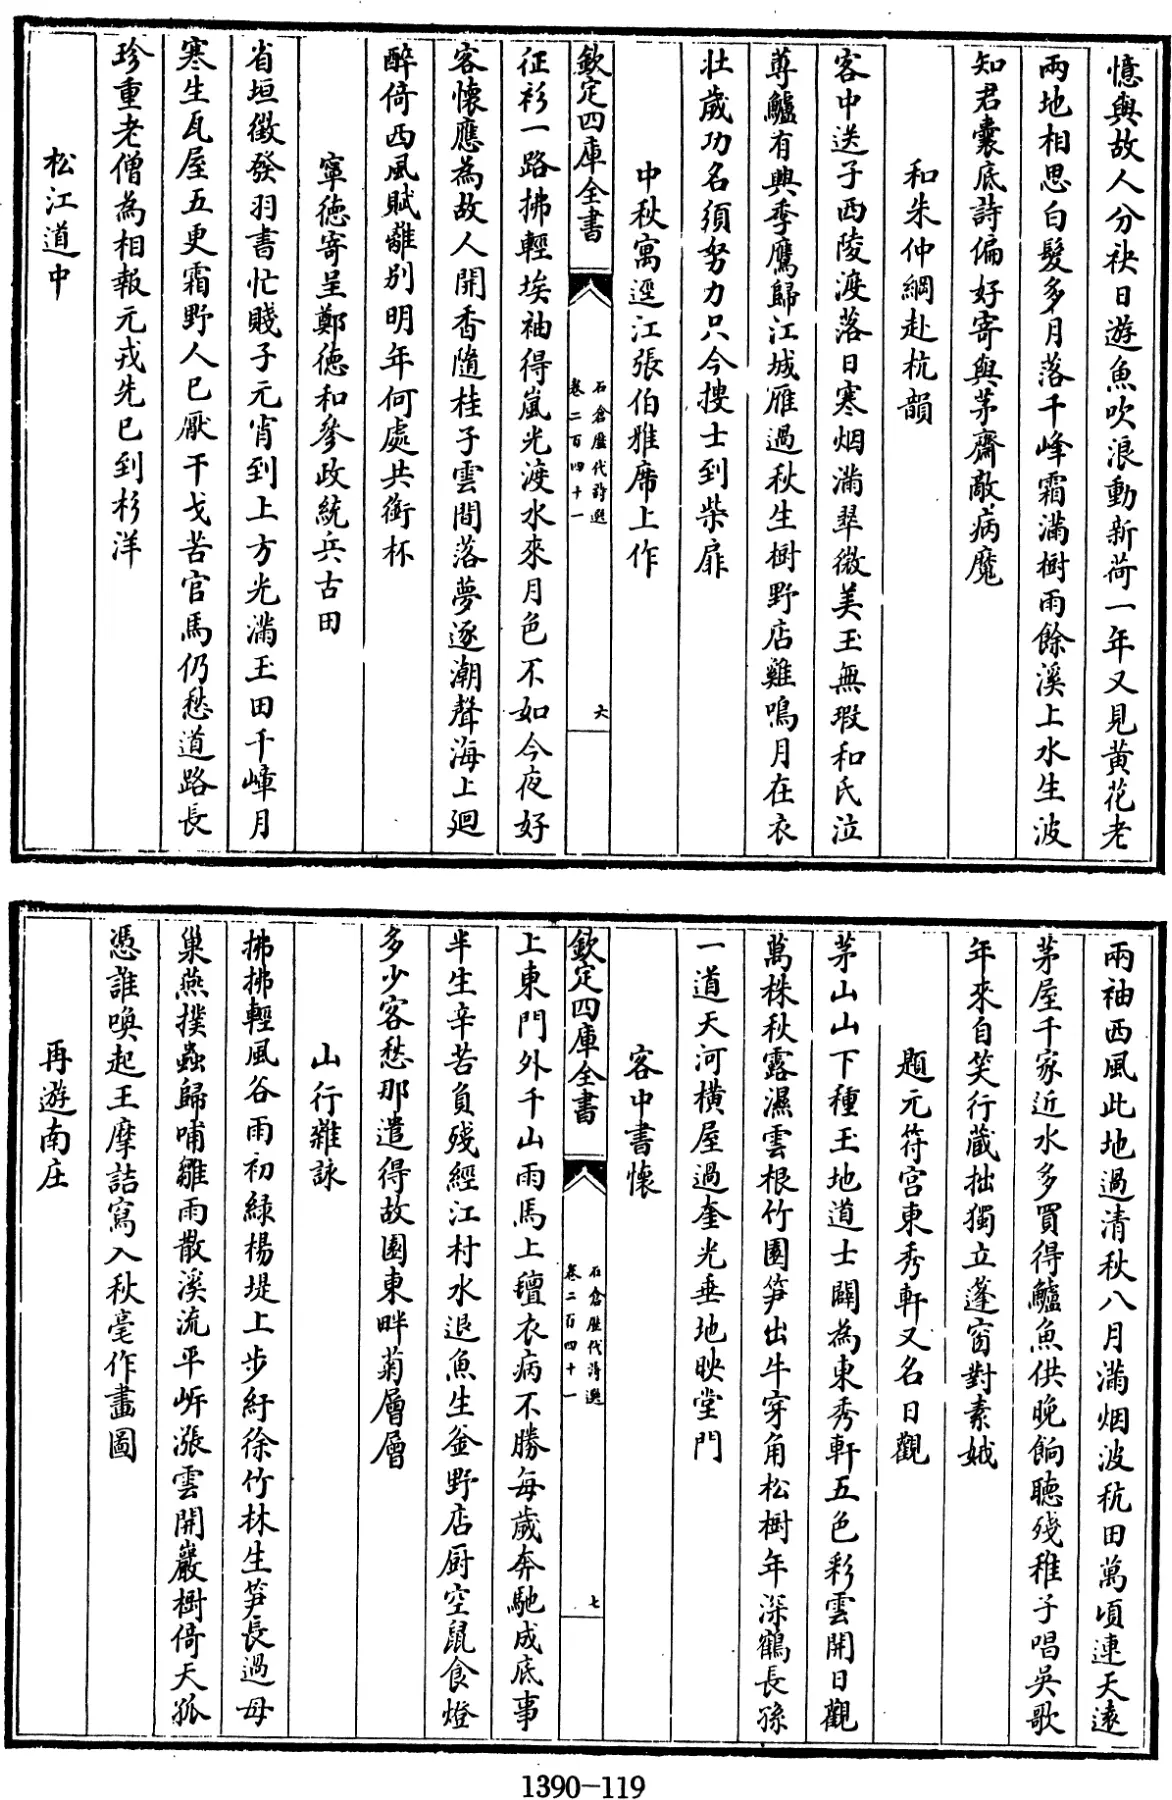 憶與故人分袂日遊魚吹浪動新荷一年又見黄花老
兩地相思白髮多月落千峰霜滿樹雨餘溪上水生波
知君囊底詩偏好寄與茅齋敵病魔
和朱仲綱赴杭韻
客中送子西陵渡落日寒烟滿翠微美玉無瑕和氏泣
蓴鱸有興季鷹歸江城雁過秋生樹野店雞鳴月在衣
壯歲功名須努力只今搜士到柴扉
中秋寓逕江張伯雅席上作
欽定四庫全書
石倉歷代詩選
卷二百四十一
六
征衫一路拂輕埃袖得嵐光渡水來月色不如今夜好
客懷應為故人開香隨桂子雲間落夢逐潮聲海上廻
醉倚西風賦離别明年何處共銜杯
寧德寄呈鄭德和參政統兵古田
省垣徵發羽書忙賤子元宵到上方光滿玉田千嶂月
寒生瓦屋五更霜野人已厭干戈苦官馬仍愁道路長
珍重老僧為相報元戎先已到杉洋
松江道中
兩袖西風此地過清秋八月滿烟波秔田萬頃連天遠
茅屋千家近水多買得鱸魚供晚餉聽殘稚子唱吳歌
年來自笑行藏拙獨立蓬窗對素娥
題元符宫東秀軒又名日觀
茅山山下種玉地道士闢為東秀軒五色彩雲開日觀
萬株秋露濕雲根竹園笋出牛穿角松樹年深鶴長孫
一道天河横屋過奎光垂地映堂門
客中書懷
欽定四庫全書
石倉歷代詩選
卷二百四十一
七
上東門外千山雨馬上氊衣病不勝每歲奔馳成底事
半生辛苦負殘經江村水退魚生釜野店厨空鼠食燈
多少客愁那遣得故園東畔菊層層
山行雜詠
拂拂輕風谷雨初緑楊堤上步紆徐竹林生笋長過母
巢燕撲蟲歸哺雛雨散溪流平岍漲雲開巖樹倚天孤
憑誰喚起王摩詰寫入秋毫作畫圖
再遊南庄
1390-119